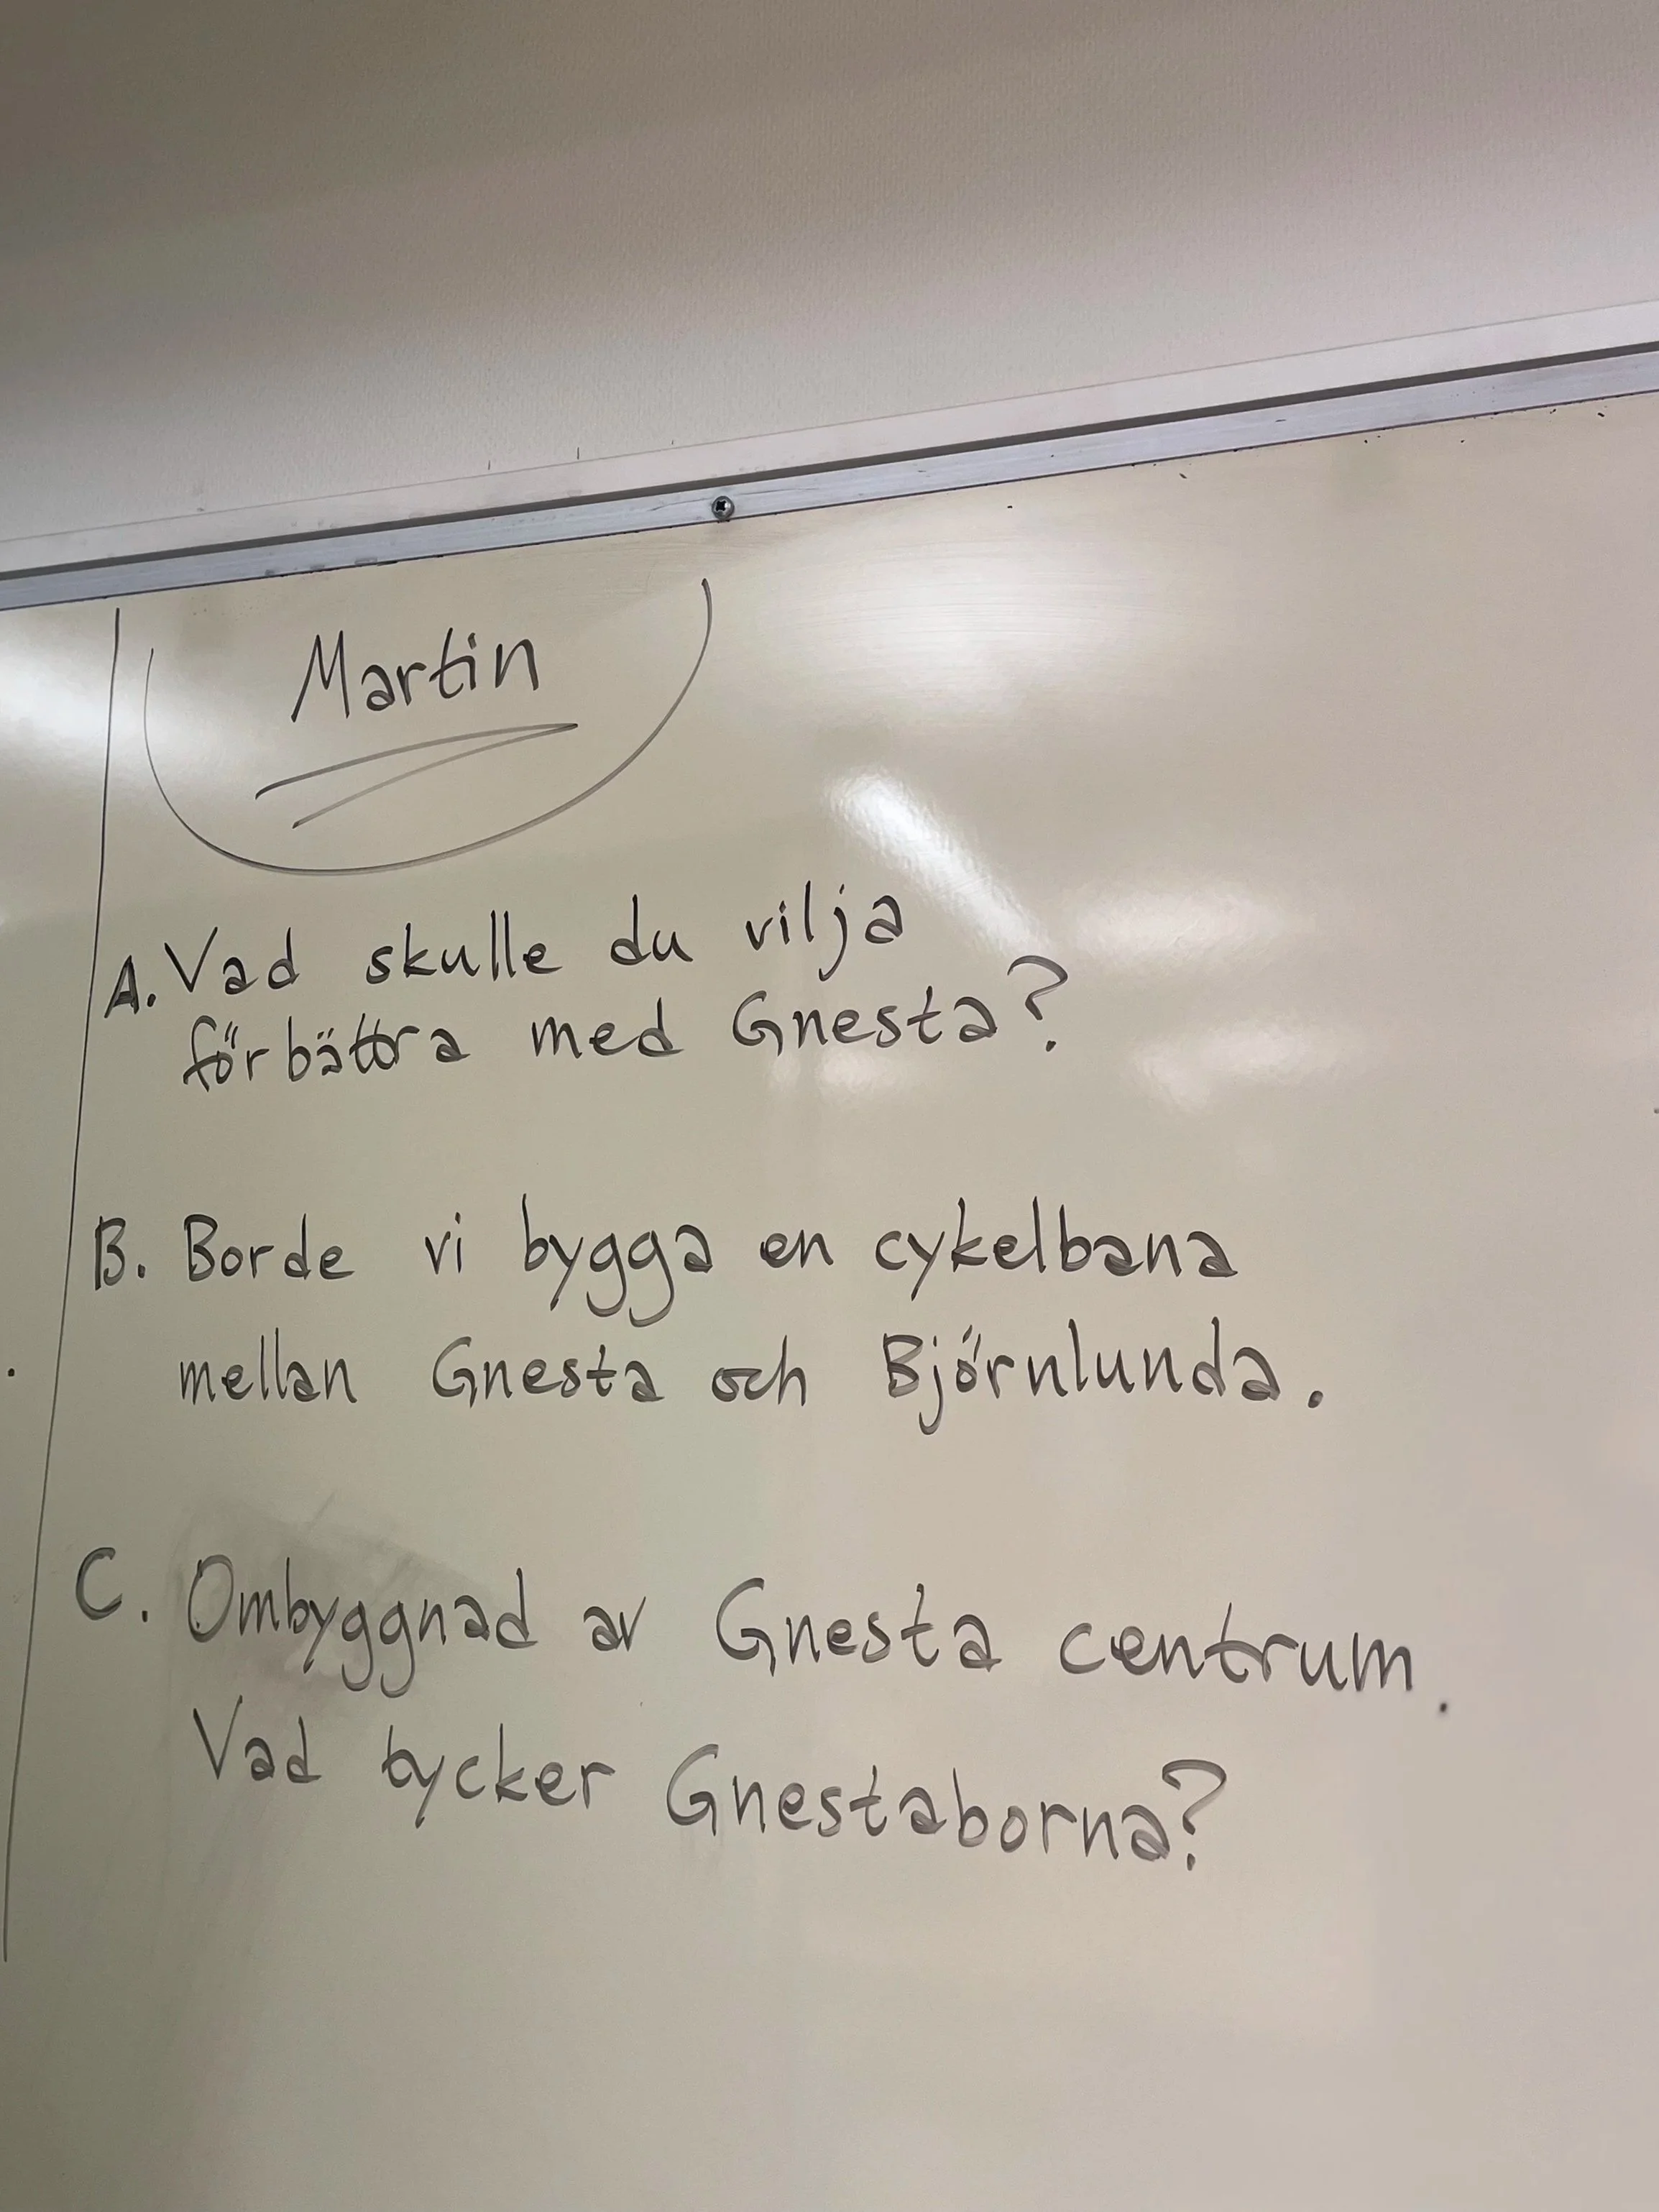 Martin
A. Vad skulle du vilja
förbättra med Gnesta?
B. Borde vi bygga en cykelbana
mellan Gnesta och Björnlunda.
C. Ombyggnad av Gnesta centrum.
Vad tycker Gnestaborna?